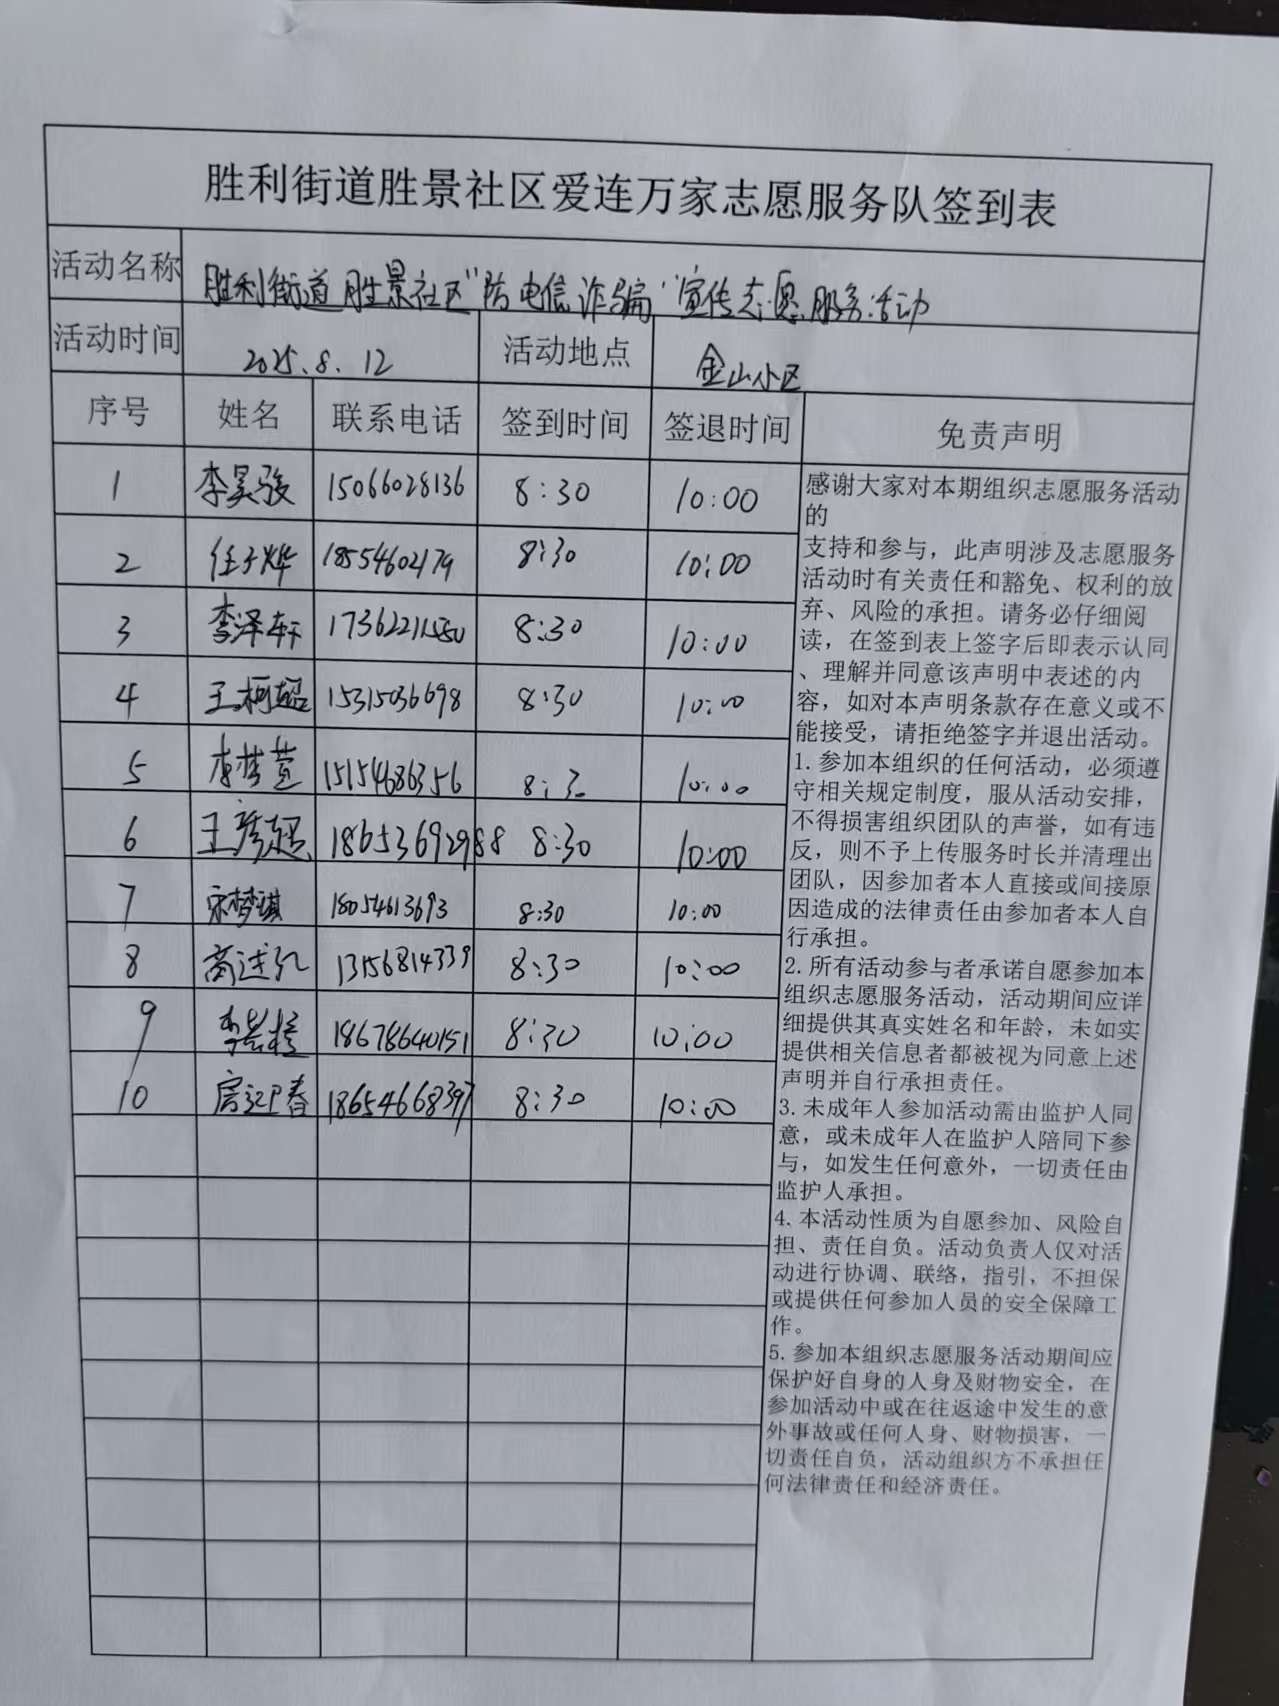 胜利街道胜景社区爱连万家志愿服务队签到表
活动名称 胜利街道胜景社区"防电信诈骗"宣传志愿服务活动
活动时间 2025.8.12 活动地点 金山小区
序号 姓名 联系电话 签到时间 签退时间 免责声明
1 李昊骏 15066028136 8:30 10:00
2 任子烨 18554602179 8:30 10:00
3 李泽轩 8:30 10:00
4 王柯超 15315036698 8:30 10:00
5 李梦萱 15154686356 8:30 10:00
6 王彦超 18653692988 8:30 10:00
7 宋梦琪 18054613693 8:30 10:00
8 商进弘 13156814339 8:30 10:00
9 18678640151 8:30 10:00
10 房迎春 18654668397 8:30 10:00
感谢大家对本期组织志愿服务活动
的
支持和参与，此声明涉及志愿服务
活动时有关责任和豁免、权利的放
弃、风险的承担。请务必仔细阅
读，在签到表上签字后即表示认同
、理解并同意该声明中表述的内
容，如对本声明条款存在意义或不
能接受，请拒绝签字并退出活动。
1. 参加本组织的任何活动，必须遵
守相关规定制度，服从活动安排，
不得损害组织团队的声誉，如有违
反，则不予上传服务时长并清理出
团队，因参加者本人直接或间接原
因造成的法律责任由参加者本人自
行承担。
2. 所有活动参与者承诺自愿参加本
组织志愿服务活动，活动期间应详
细提供其真实姓名和年龄，未如实
提供相关信息者都被视为同意上述
声明并自行承担责任。
3. 未成年人参加活动需由监护人同
意，或未成年人在监护人陪同下参
与，如发生任何意外，一切责任由
监护人承担。
4. 本活动性质为自愿参加、风险自
担、责任自负。活动负责人仅对活
动进行协调、联络，指引，不担保
或提供任何参加人员的安全保障工
作。
5. 参加本组织志愿服务活动期间应
保护好自身的人身及财物安全，在
参加活动中或在往返途中发生的意
外事故或任何人身、财物损害，一
切责任自负，活动组织方不承担任
何法律责任和经济责任。